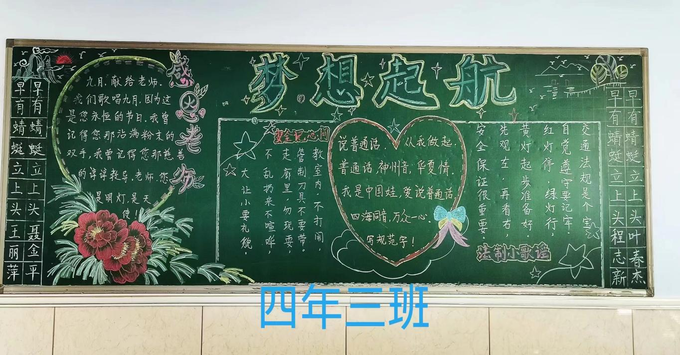 梦想起航
感恩老师
九月,献给老师.
我们歌唱九月,因为这
是您永恒的节日,我曾
记得您那沾满粉支的
双手,我曾记得您那艳艳
的谆谆教车.老师,您
是明灯,是天
使
早有蜻蜓立上头王丽萍
早有蜻蜓立上头聂金平
安全记心间
教室内,不打闹,
管制刀具不要带,
走廊里,勿玩耍,
不乱扔来不喧哗,
大让小要礼貌,
说普通话,从我做起.
普通话,神州音,华夏情.
我是中国娃,爱说普通话.
四海同音,万众一心.
写规范字!
法制小歌谣
交通法规是个宝,
自觉遵守要记牢,
红灯停,绿灯行,
黄灯起步准备好,
先观左,再看右,
安全保证很重要
早有蜻蜓立上头程志新
早有蜻蜓立上头叶春杰
四年三班